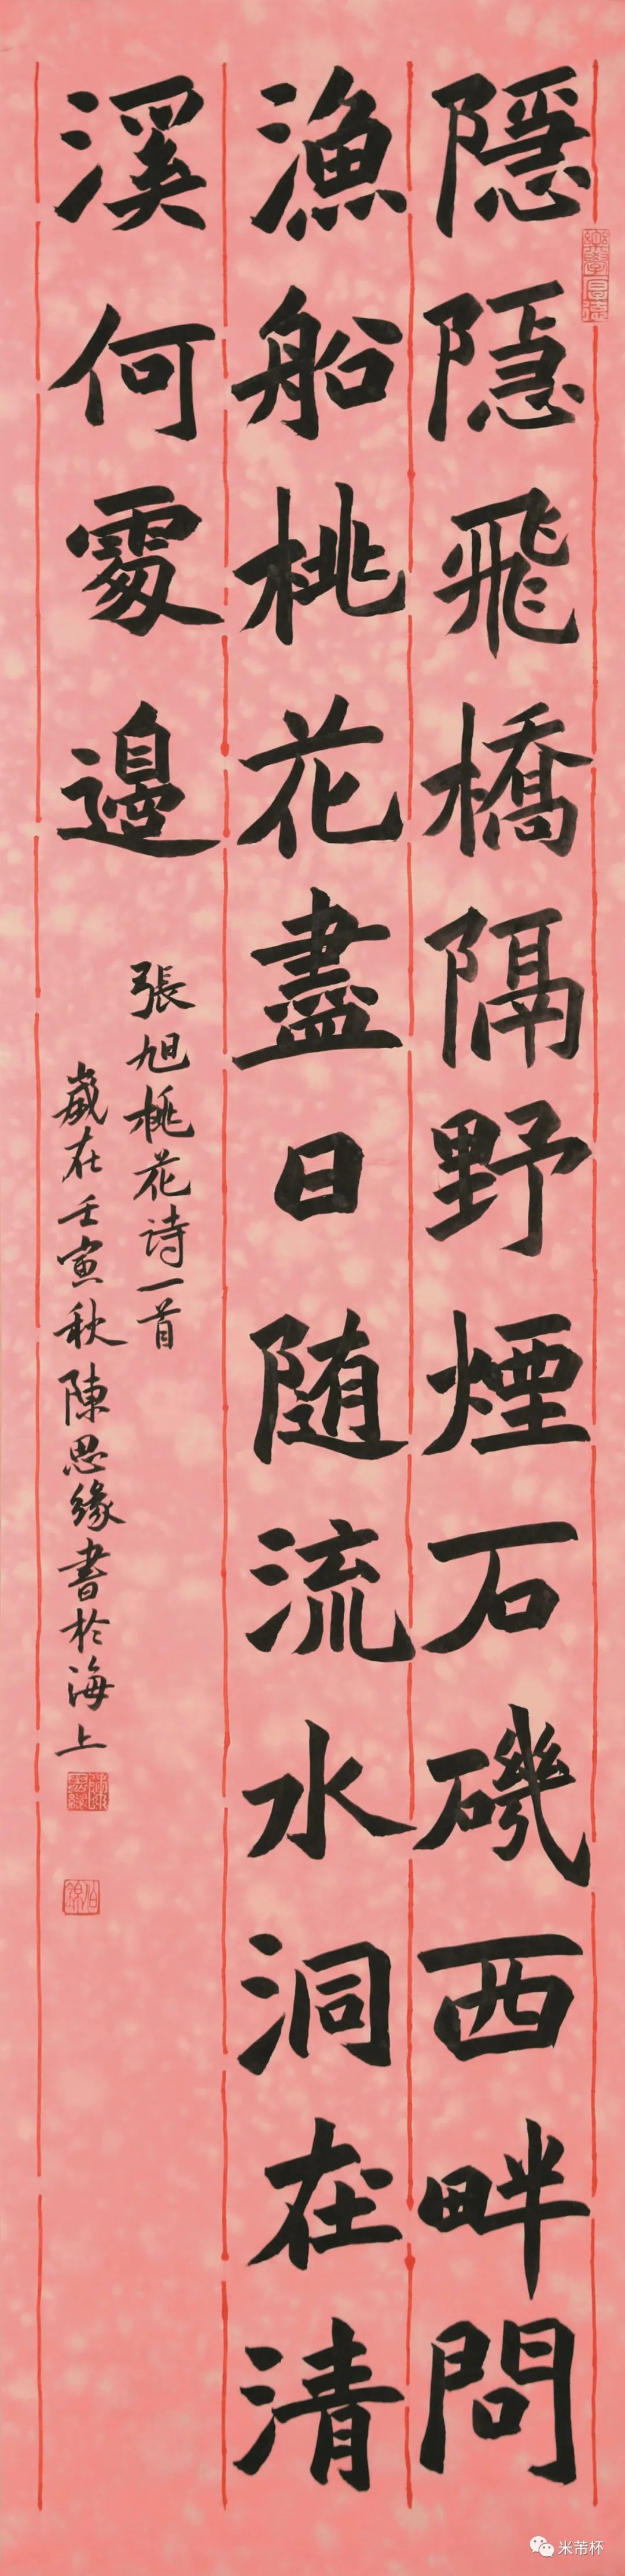 隱隱飛橋隔野煙石磯西畔問
漁船桃花盡日随流水洞在清
溪何處邊
張旭桃花诗一首
歲在壬寅秋陳思緣書於海上
米芾杯